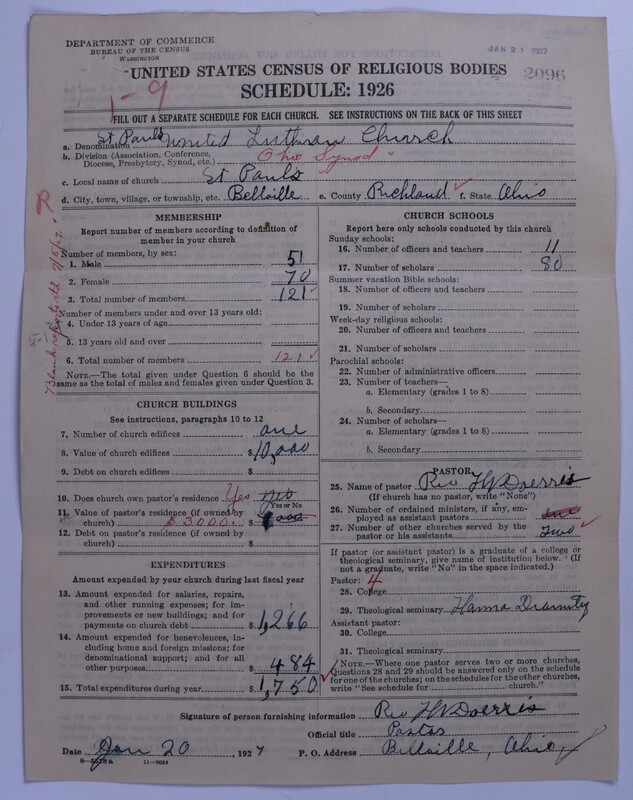 DEPARTMENT OF COMMERCE
BUREAU OF THE CENSUS
WASHINGTON
JAN 21 1927
2096
UNITED STATES CENSUS OF RELIGIOUS BODIES
SCHEDULE: 1926
1-9
FILL OUT A SEPARATE SCHEDULE FOR EACH CHURCH. SEE INSTRUCTIONS ON THE BACK OF THIS SHEET
a. Denomination St Pauls United Lutheran Church
b. Division (Association, Conference, Diocese, Presbytery, Synod, etc.) Ohio Synod
c. Local name of church St Pauls
d. City, town, village, or township, etc. Bellville e. County Richland f. State Ohio
R
MEMBERSHIP
Report number of members according to definition of member in your church
Number of members, by sex:
1. Male 51
2. Female 70
3. Total number of members 121
Number of members under and over 13 years old:
4. Under 13 years of age
5. 13 years old and over
6. Total number of members 121
NOTE.—The total given under Question 6 should be the same as the total of males and females given under Question 3.
CHURCH BUILDINGS
See instructions, paragraphs 10 to 12
7. Number of church edifices one
8. Value of church edifices $10,000
9. Debt on church edifices $
10. Does church own pastor's residence? Yes
Yes or No
11. Value of pastor's residence (if owned by church) $3000. $
12. Debt on pastor's residence (if owned by church) $
EXPENDITURES
Amount expended by your church during last fiscal year
13. Amount expended for salaries, repairs, and other running expenses; for improvements or new buildings; and for payments on church debt $1,266
14. Amount expended for benevolences, including home and foreign missions; for denominational support; and for all other purposes $484
15. Total expenditures during year $1,750
CHURCH SCHOOLS
Report here only schools conducted by this church
Sunday schools:
16. Number of officers and teachers 11
17. Number of scholars 80
Summer vacation Bible schools:
18. Number of officers and teachers
19. Number of scholars
Week-day religious schools:
20. Number of officers and teachers
21. Number of scholars
Parochial schools:
22. Number of administrative officers
23. Number of teachers—
a. Elementary (grades 1 to 8)
b. Secondary
24. Number of scholars—
a. Elementary (grades 1 to 8)
b. Secondary
PASTOR
25. Name of pastor Rev H W Doerris
(If church has no pastor, write "None")
26. Number of ordained ministers, if any, employed as assistant pastors
27. Number of other churches served by the pastor or his assistants Two
If pastor (or assistant pastor) is a graduate of a college or theological seminary, give name of institution below. (If not a graduate, write "No" in the space indicated.)
Pastor: 4
28. College
29. Theological seminary Hamma
Assistant pastor:
30. College
31. Theological seminary
NOTE.—Where one pastor serves two or more churches, Questions 28 and 29 should be answered only on the schedule for one of the churches; on the schedules for the other churches, write "See schedule for church."
Signature of person furnishing information Rev H W Doerris
Official title Pastor
Date Jan 20, 1927 P. O. Address Bellville, Ohio,
11—9024